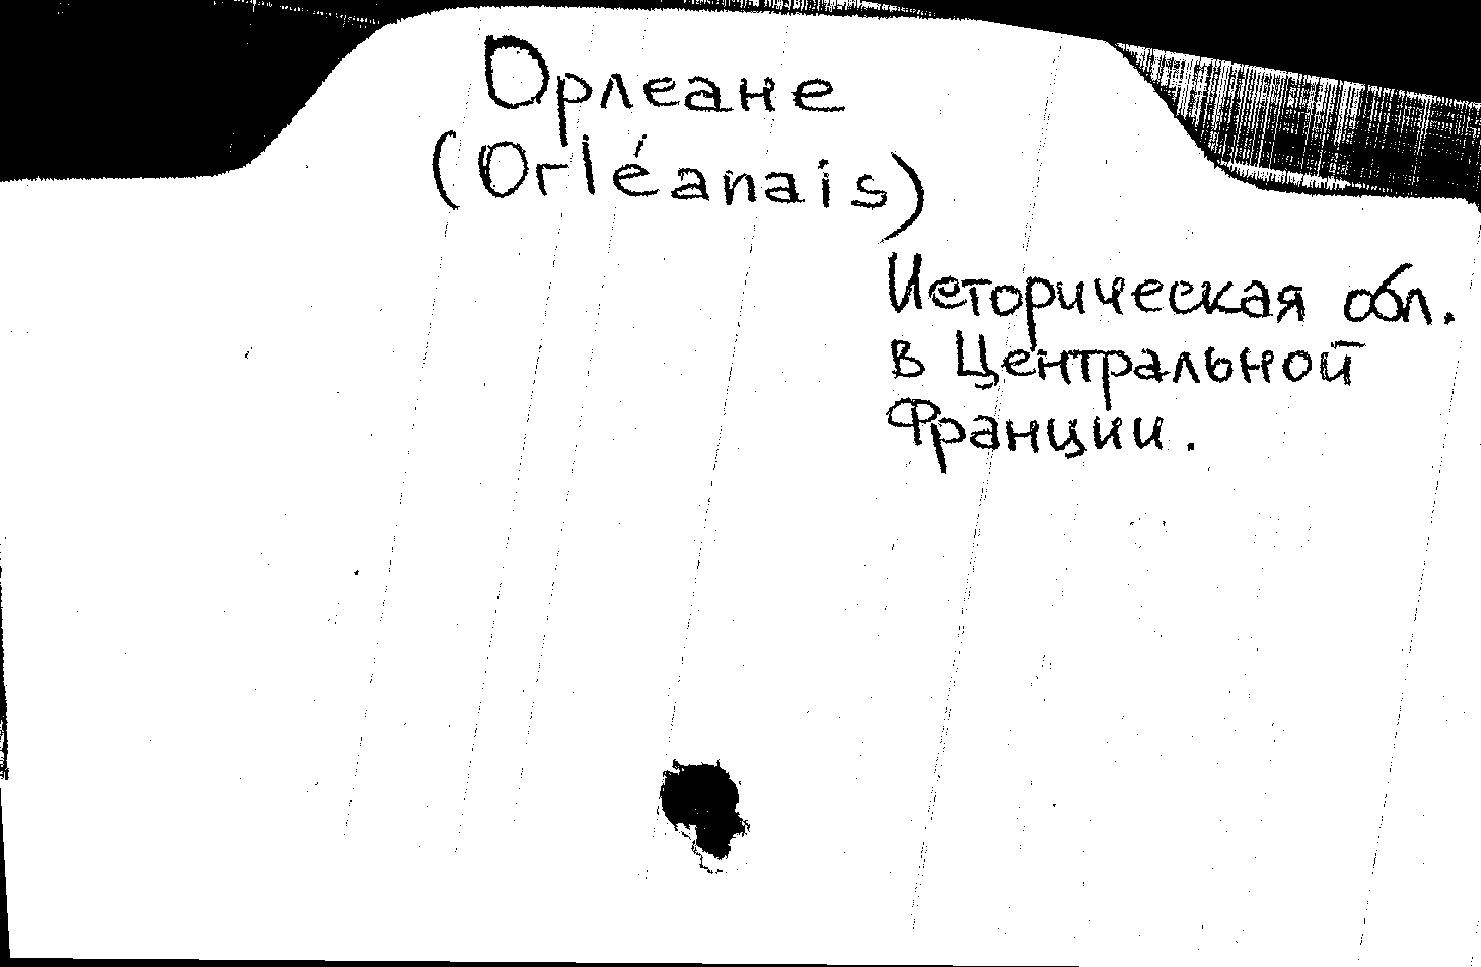 Орлеане
(Orléanais)
Историческая обл.
в Центральной
Франции.